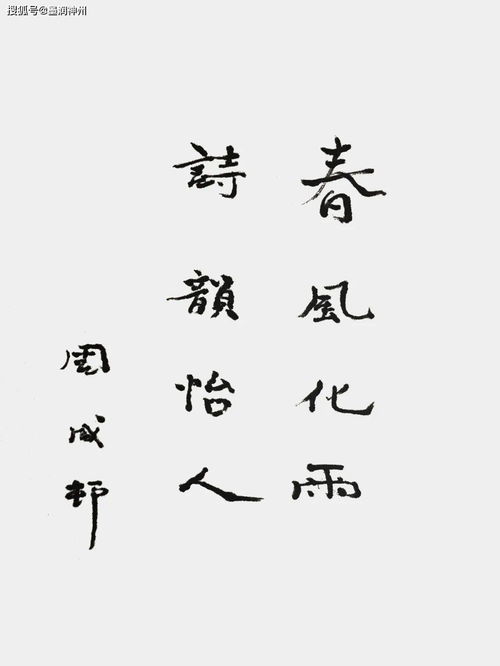 搜狐号@墨润神州
春風化雨
詩韻怡人
周成村